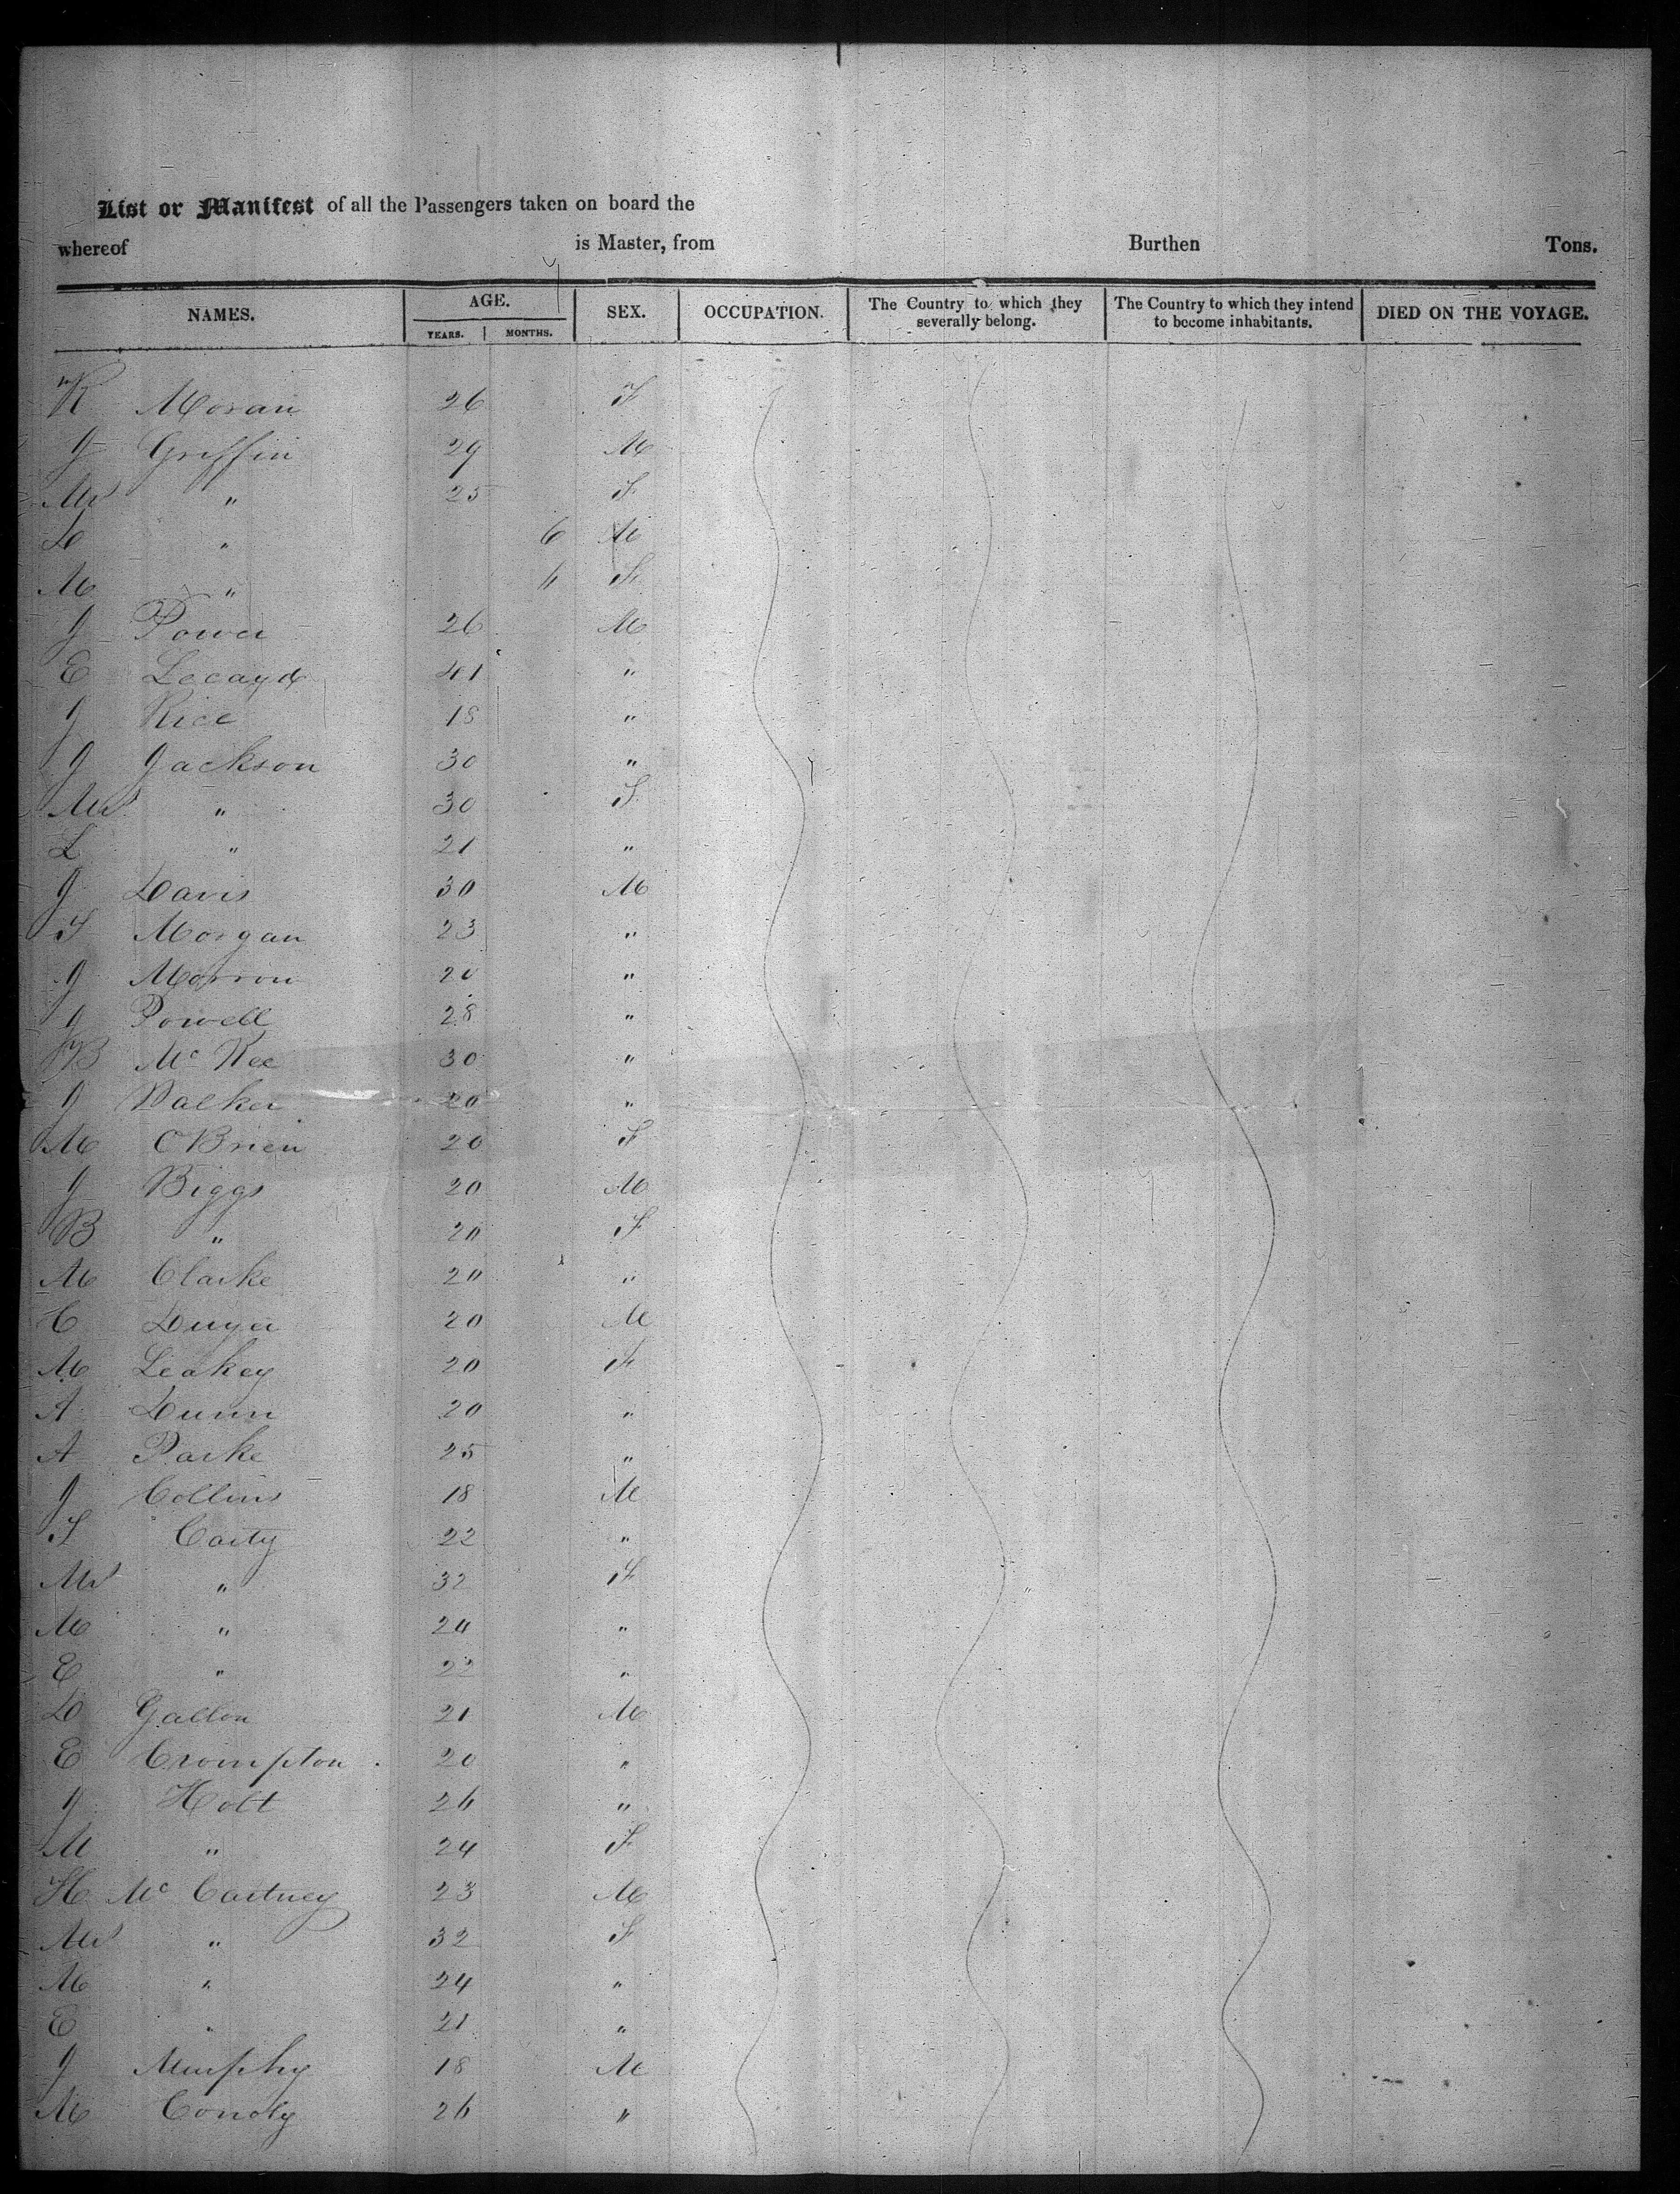 List or Manifest of all the Passengers taken on board the
whereof is Master, from Burthen Tons.
NAMES. AGE. SEX. OCCUPATION. The Country to which they severally belong. The Country to which they intend to become inhabitants. DIED ON THE VOYAGE.
YEARS. MONTHS.
K Moran 26 F
J Griffin 29 M
Mrs " 25 F
D " 6 M
M " F
J Power 26 M
E 41 "
J Rice 18 "
J Jackson 30 "
Mrs " 30 F
L " 21 "
J Davis 30 M
T Morgan 23 "
J 20 "
J Powell 28 "
B Mc Kee 30 "
J Walker 20 "
M O'Brien 20 F
J Biggs 20 M
B " 20 F
M Clarke 20 "
C Dwyer 20 M
M Leakey 20 F
A Dunn 20 "
A Parke 25 "
J Collins 18 M
T Carty 22 "
Mrs " 32 F
M " 20 "
E " 22 "
D Gallon 21 M
E Crompton 20 "
J Holt 26 "
M " 24 F
H Mc Cartney 23 M
Mrs " 32 F
M " 24 "
E " 21 "
J Murphy 18 M
M Condly 26 "